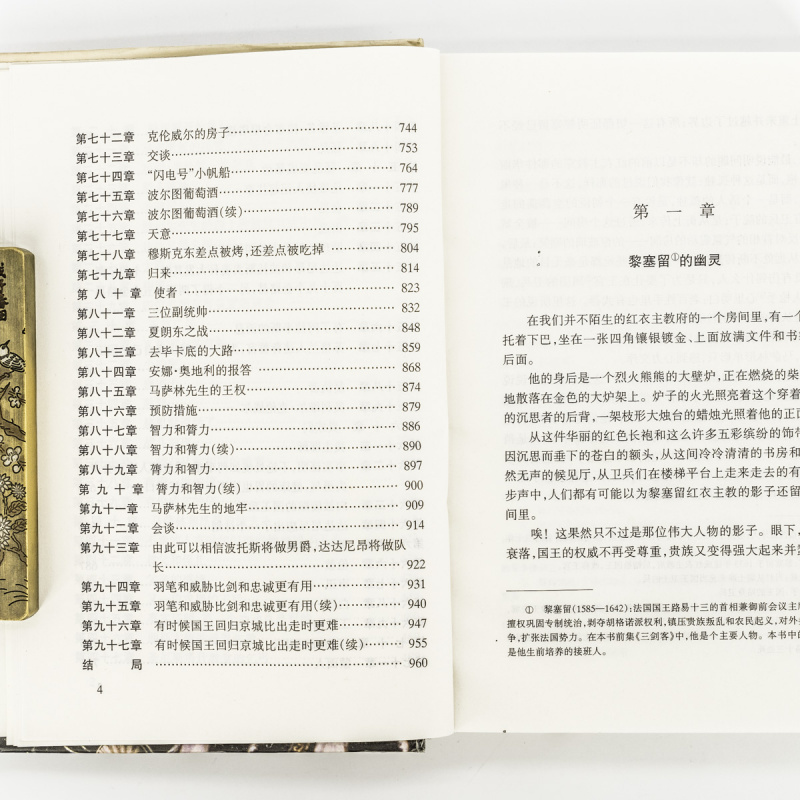 第七十二章 克伦威尔的房子……744
第七十三章 交谈……753
第七十四章 “闪电号”小帆船……764
第七十五章 波尔图葡萄酒……777
第七十六章 波尔图葡萄酒(续)……789
第七十七章 天意……795
第七十八章 穆斯克东差点被烤,还差点被吃掉……804
第七十九章 归来……814
第八十章 使者……823
第八十一章 三位副统帅……832
第八十二章 夏朗东之战……848
第八十三章 去毕卡底的大路……859
第八十四章 安娜·奥地利的报答……868
第八十五章 马萨林先生的王权……874
第八十六章 预防措施……879
第八十七章 智力和膂力……886
第八十八章 智力和膂力(续)……890
第八十九章 膂力和智力……897
第九十章 膂力和智力(续)……900
第九十一章 马萨林先生的地牢……909
第九十二章 会谈……914
第九十三章 由此可以相信波托斯将做男爵,达达尼昂将做队
长……922
第九十四章 羽笔和威胁比剑和忠诚更有用……931
第九十五章 羽笔和威胁比剑和忠诚更有用(续)……940
第九十六章 有时候国王回归京城比出走时更难……947
第九十七章 有时候国王回归京城比出走时更难(续)……955
结局……960
4
第一章
黎塞留①的幽灵
在我们并不陌生的红衣主教府的一个房间里,有一个
托着下巴,坐在一张四角镶银镀金、上面放满文件和书
后面。
他的身后是一个烈火熊熊的大壁炉,正在燃烧的柴
地散落在金色的大炉架上。炉子的火光照亮着这个穿着
的沉思者的后背,一架枝形大烛台的蜡烛光照着他的正面
从这件华丽的红色长袍和这么许多五彩缤纷的饰带
因沉思而垂下的苍白的额头,从这间冷冷清清的书房和
然无声的候见厅,从卫兵们在楼梯平台上走来走去的有
步声中,人们都有可能以为黎塞留红衣主教的影子还留
间里。
唉!这果然只不过是那位伟大人物的影子。眼下,
衰落,国王的权威不再受尊重,贵族又变得强大起来并
① 黎塞留(1585—1642):法国国王路易十三的首相兼御前会议主席
擅权巩固专制统治,剥夺胡格诺派权利,镇压贵族叛乱和农民起义,对外
争,扩张法国势力。在本书前集《三剑客》中,他是个主要人物。本书中的
是他生前培养的接班人。